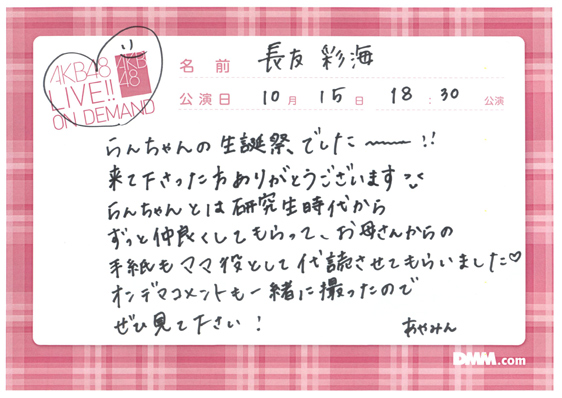 AKB48
LIVE!!
ON DEMAND
AKB
48
名前 長友 彩海
公演日 10月 15日 18:30 公演
らんちゃんの生誕祭、でした〜!!
来て下さった方ありがとうございます
らんちゃんとは研究生時代から
ずっと仲良くしてもらって、お母さんからの
手紙もママ役として代読させてもらいました♡
オンデマコメントも一緒に撮ったので
ぜひ見て下さい!
あやみん
DMM.com